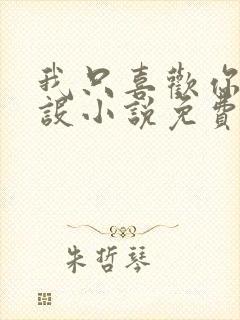 我只喜歡你
設小說免費
朱哲琴